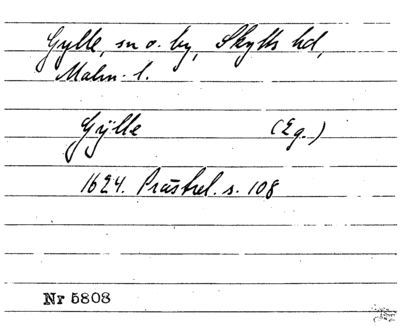 Gylle, sn o. by, Skytts hd,
Malm. l.
Gÿlle (Eg.)
1624. Prästrel. s. 108
Nr 5808